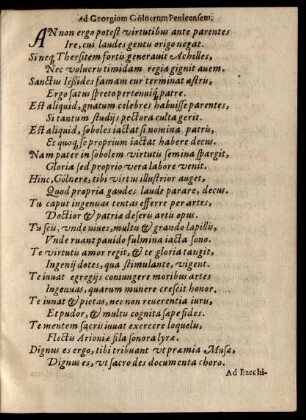 Ad Georgium Gölnerum Fenicensem.
AN non ergo potest virtutibus ante parentes
Ire, cui laudes gentu origo negat.
Si neq; Thersitem fortu generauit Achilles,
Nec volucru timidam regia gignit auem.
Sanctus Iessides famam cur terminat astru,
Ergo satus spreto pertenuiq́; patre.
Est aliquid, gnatum celebres habuisse parentes,
Si tantum studiys pectora culta gerit.
Est aliquid, soboles iactat si nomina patris,
Et quoq́; se proprium iactat habere decus.
Nam pater in sobolem virtutu semina spargit,
Gloria sed proprio vera labore venit.
Hinc, Gölnere, tibi virtus illustrior auget,
Quod propria gaudes laude parare, decus.
Tu caput ingenuas tentas efferre per artes,
Doctior & patria deseru artu opus.
Tu scu, vnde niues, multu & grando lapillu,
Vnde ruant pauido fulmina iacta sono.
Te virtutu amor regit, & te gloria tangit,
Ingenij dotes, qua stimulante, vigent.
Te iuuat egregijs coniungere moribus artes
Ingenuas, quarum munere crescit honor.
Te iuuat & pietas, nec non reuerentia iuru,
Et pudor, & multu cognita sape fides.
Te mentem sacru iuuat exercere loquelu,
Flectu Arioniæ fila sonora lyræ.
Dignus es ergo, tibi tribuant vt præmia Musæ,
Dignus es, vt sacro des documenta choro.
Ad Ezechi-